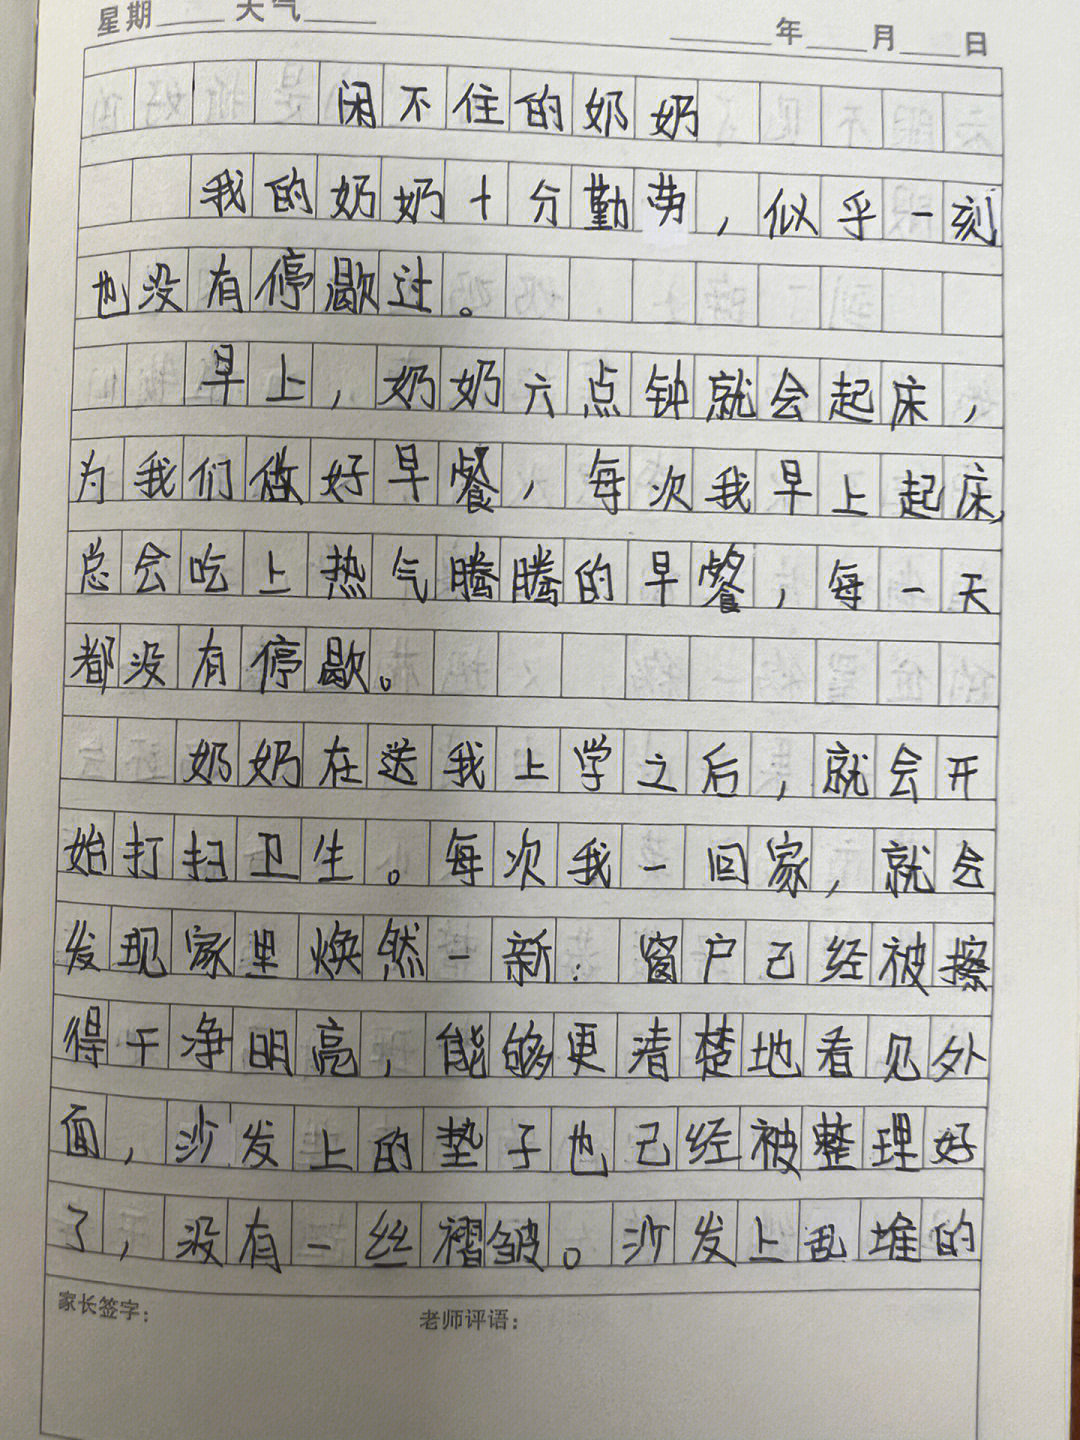 星期____ 天气____
____年____月____日
闲不住的奶奶
我的奶奶十分勤劳，似乎一刻
也没有停歇过。
早上，奶奶六点钟就会起床，
为我们做好早餐，每次我早上起床，
总会吃上热气腾腾的早餐，每一天
都没有停歇。
奶奶在送我上学之后，就会开
始打扫卫生。每次我一回家，就会
发现家里焕然一新：窗户已经被擦
得干净明亮，能够更清楚地看见外
面，沙发上的垫子也已经被整理好
了，没有一丝褶皱。沙发上乱堆的
家长签字：
老师评语：